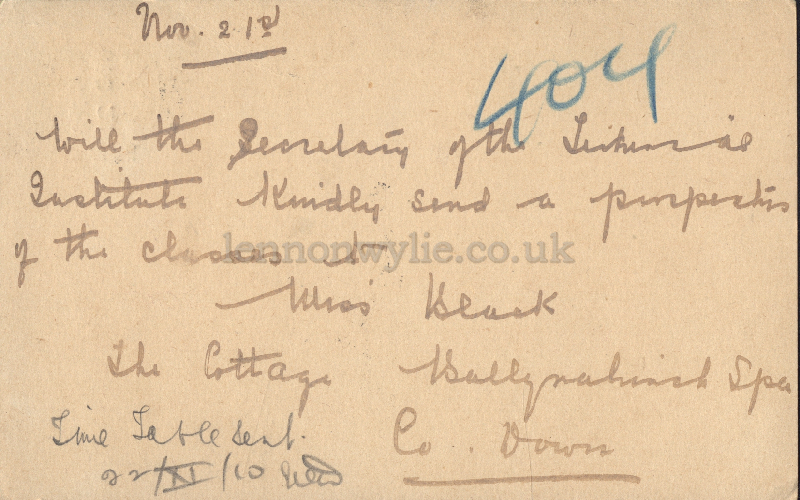 Nov. 21st
404
Will the Secretary of the Technical
Institute Kindly send a prospectus
of the classes to
lennonwylie.co.uk
Miss Black
The Cottage Ballynahinch Spa
Co. Down
Time Table sent.
22/XI/10